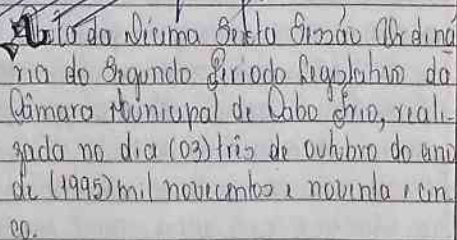 Ata da Décima Sexta Sessão Ordiná
ria do Segundo Período Legislativo da
Câmara Municipal de Cabo Frio, reali-
zada no dia (03) três de outubro do ano
de (1995) mil novecentos e noventa e cin
co.